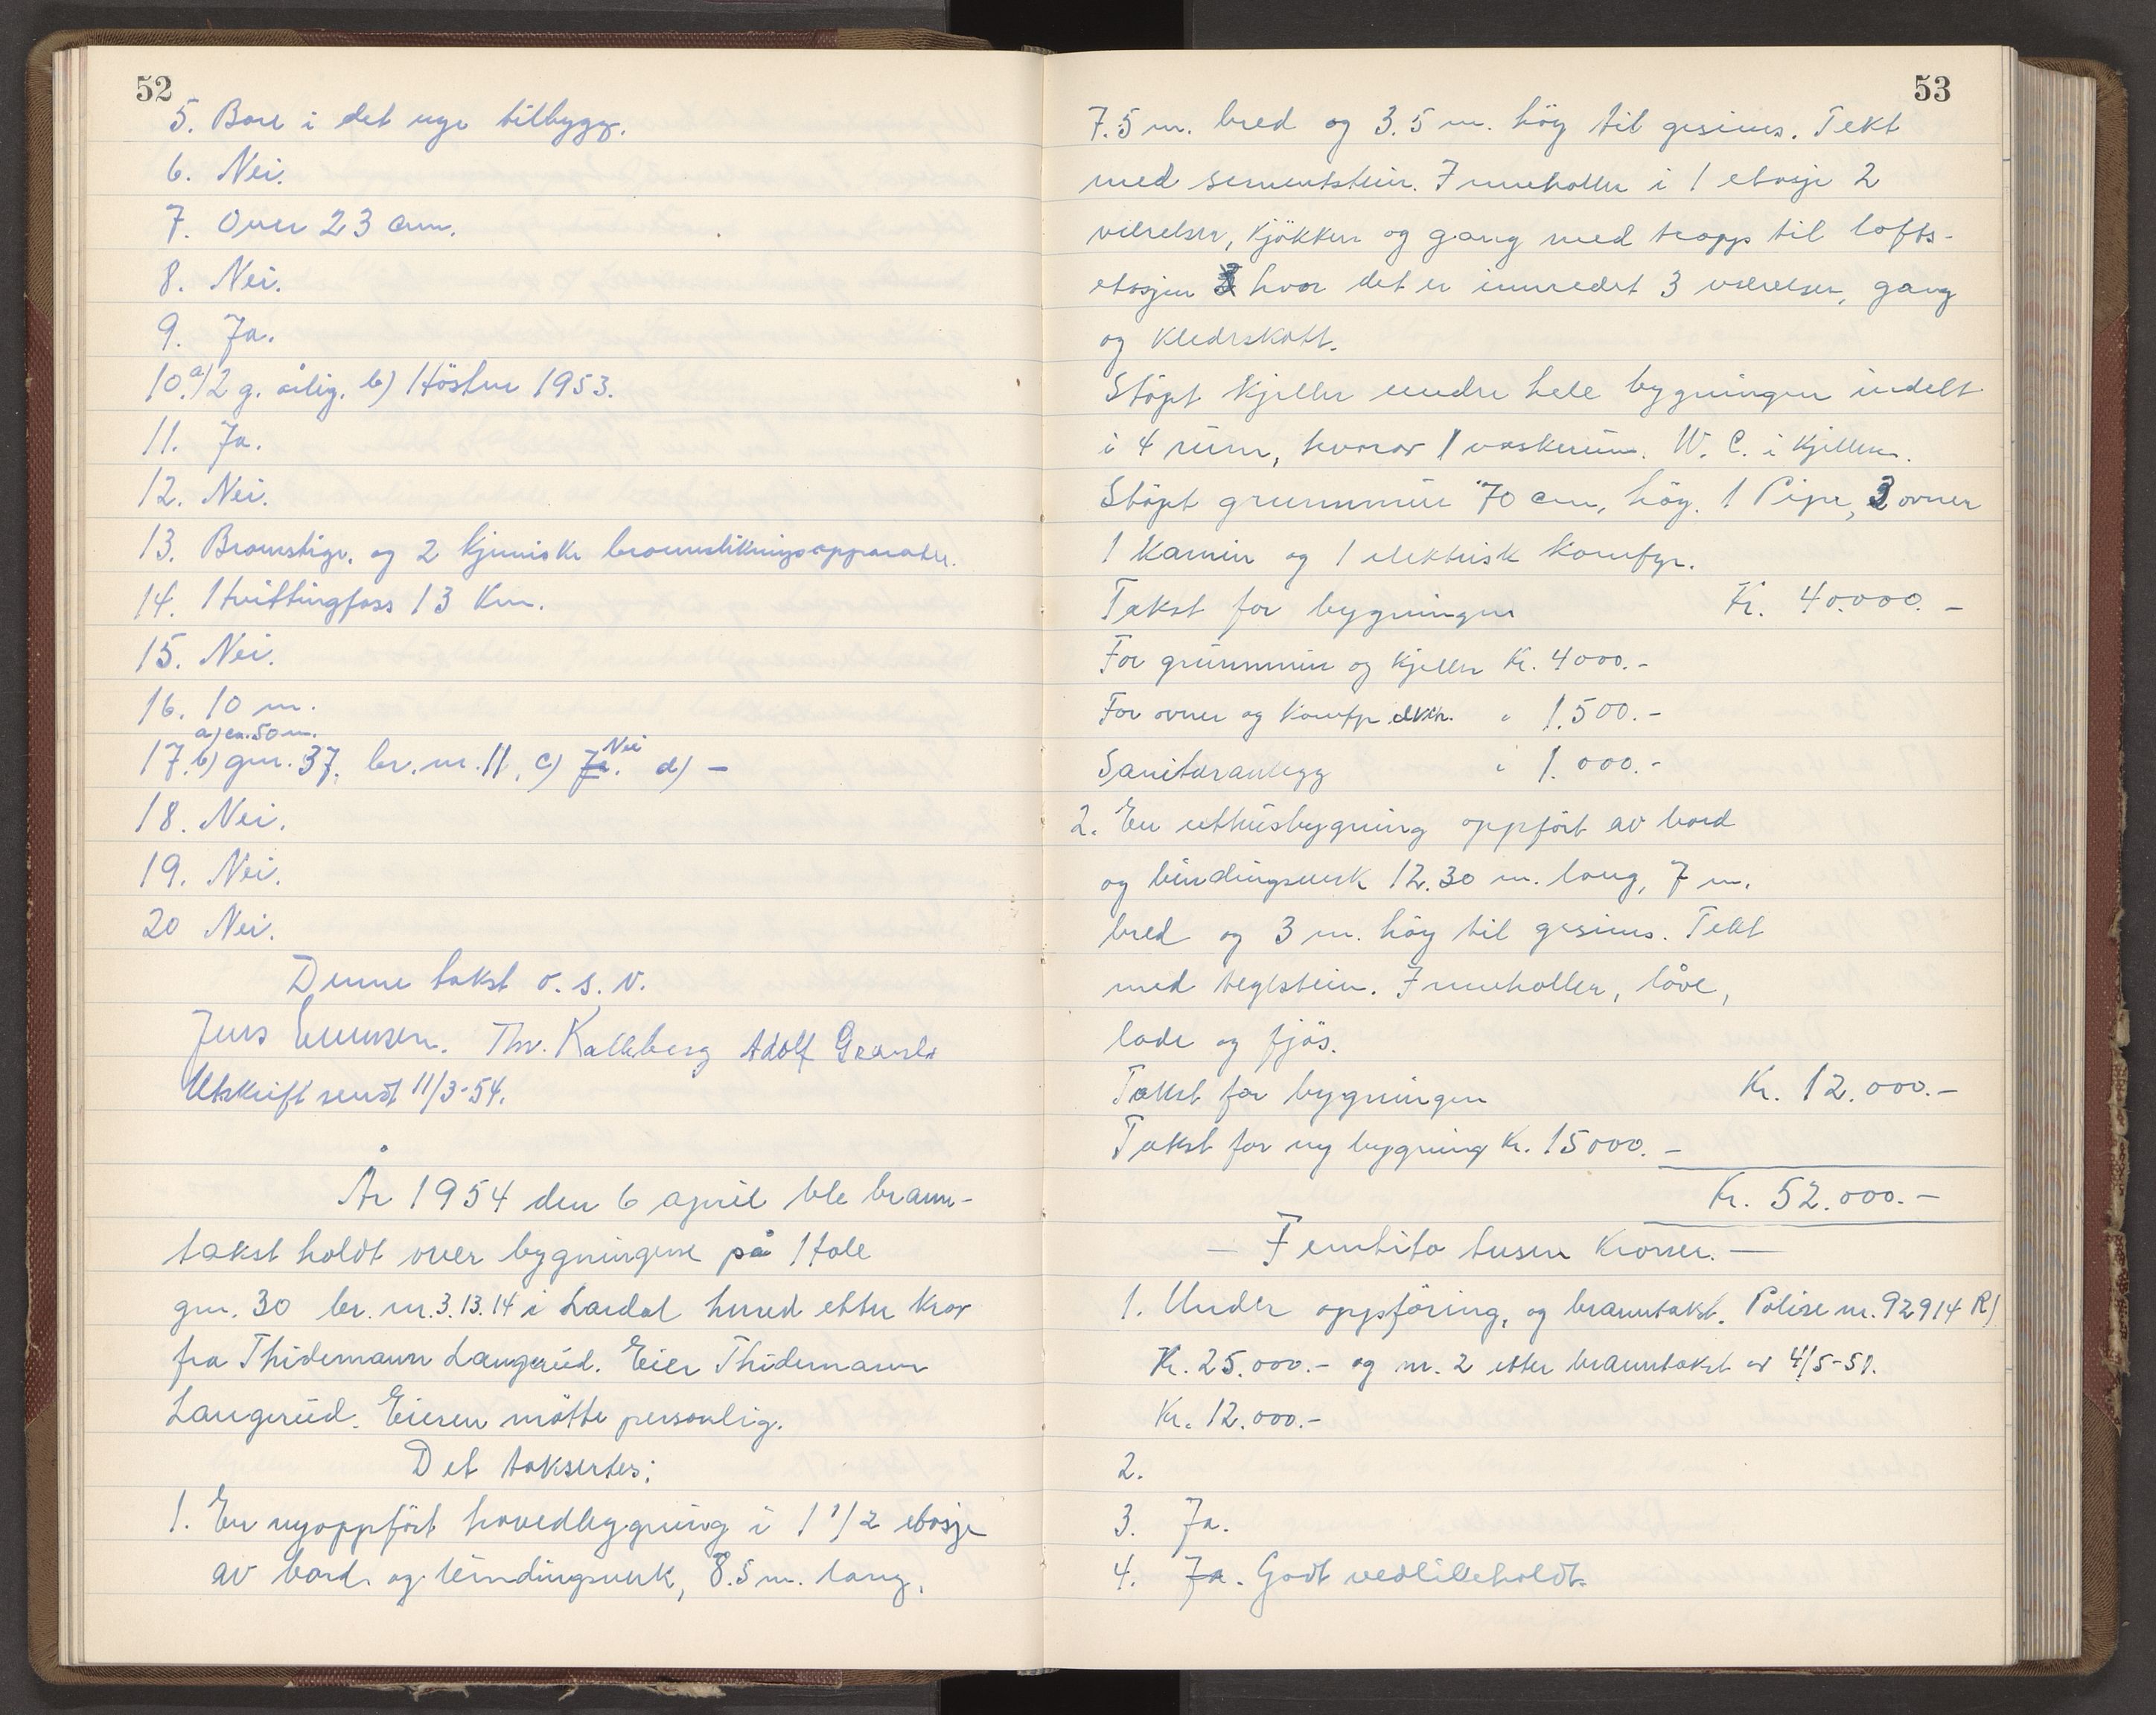 52
5. Bare i det nye tilbygg.
6. Nei.
7. Over 23 cm.
8. Nei.
9. Ja.
10. a) 2 g. årlig. b) Hösten 1953.
11. Ja.
12. Nei.
13. Brannstige. og 2 kjemiske brannslukningsapparater.
14. Hvittingfoss 13 Km.
15. Nei.
16. 10 m.
a) ca. 50 m.
17. b) gnr. 37, br. nr. 11, c) Ja. Nei d) -
18. Nei.
19. Nei.
20 Nei.
Denne takst o. s. v.
Jens Evensen. Thv. Kalleberg Adolf
Utskrift sendt 11/3-54.
År 1954 den 6 april ble brann-
takst holdt over bygningene på Hole
gnr. 30 br. nr. 3.13.14 i Lardal herred etter krav
fra Thidemann Langerud. Eier Thidemann
Langerud. Eieren mötte personlig.
Det taksertes:
1. En nyoppfört hovedbygning i 1 1/2 etasje
av bord og bindingsverk, 8.5 m. lang,
53
7.5 m. bred og 3.5 m. höy til gesims. Tekt
med sementstein. Inneholler i 1 etasje 2
værelser, kjökken og gang med trapp til lofts-
etasjen hvor det er innredet 3 værelser, gang
og kledrskott.
Stöpt kjeller undre hele bygningen indelt
i 4 rum, hvorav 1 vaskerum. W. C. i kjelleren.
Stöpt grunnmur 70 cm, höy. 1 Pipe, 3 ovner
1 Kamin og 1 elektrisk komfyr.
Takst for bygningen Kr. 40.000. -
For grunnmur og kjeller Kr. 4000.-
For ovner og komfyr elektr. " 1.500.-
Sanitæranlegg " 1.000.-
2. En uthusbygning oppfört av bord
og bindingsverk 12.30 m. lang, 7 m.
bred og 3 m. höy til gesims. Tekt
med teglstein. Inneholler, låve,
lade og fjös.
Takst for bygningen Kr. 12.000.-
Takst for ny bygning Kr. 15000. -
Kr. 52.000.-
- Femtito tusen Kroner. -
1. Under oppföring, og branntakst. Polise nr. 92914 R/
Kr. 25.000.- og nr. 2 etter branntakst av 4/5-51.
Kr. 12.000.-
2.
3. Ja.
4. Ja. Godt vedlilleholdt.